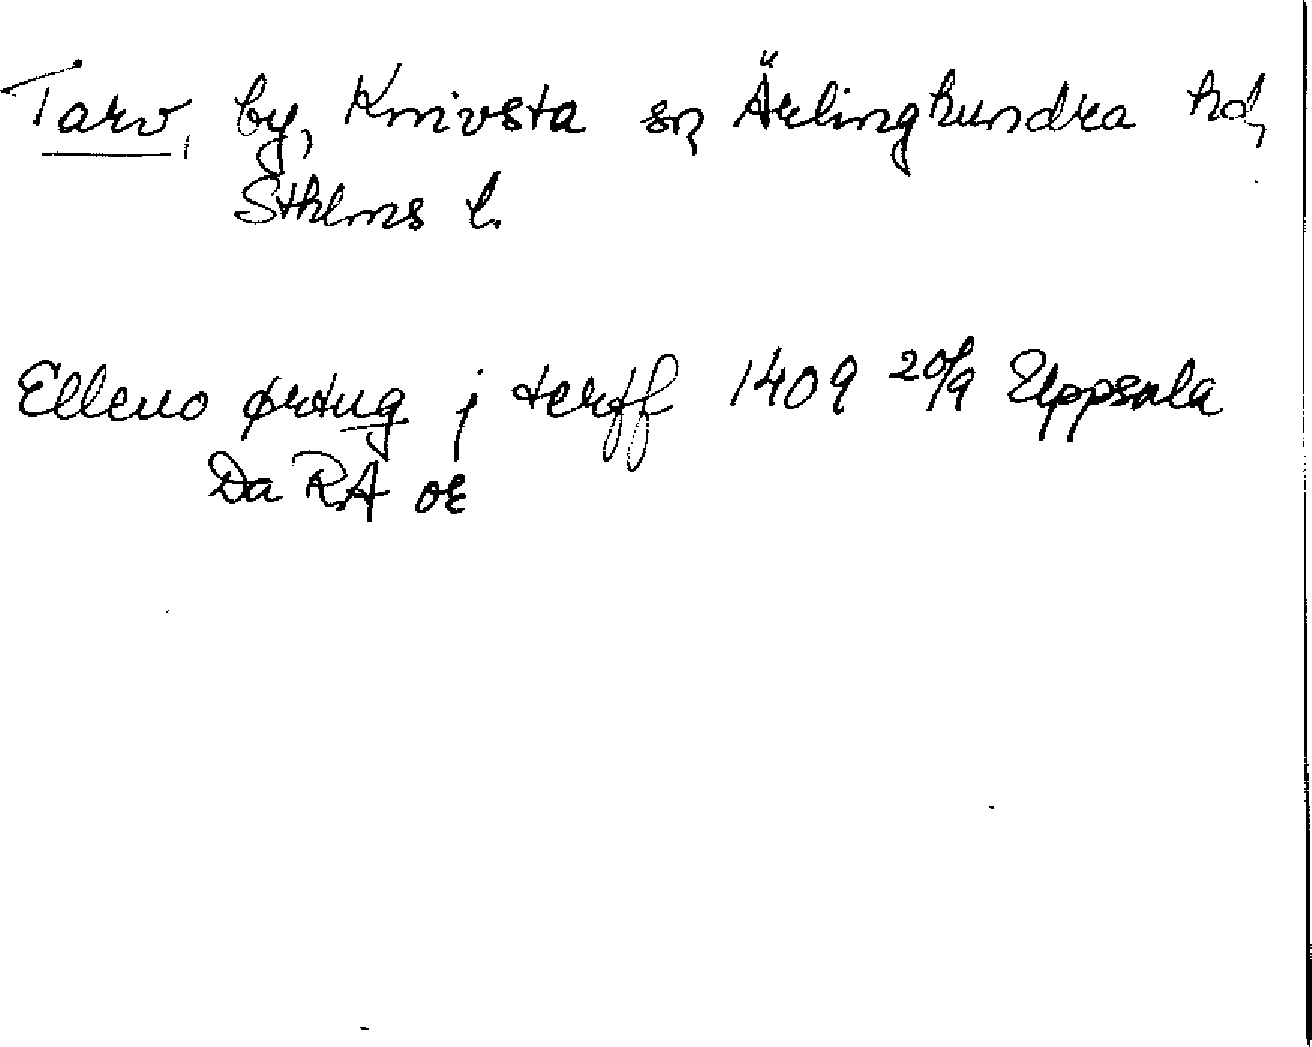 Tarv, by, Knivsta sn, Ärlinghundra hd,
Sthlms l.
Elleuo ørtug j terff 1409 20/9 Uppsala
Da RA or